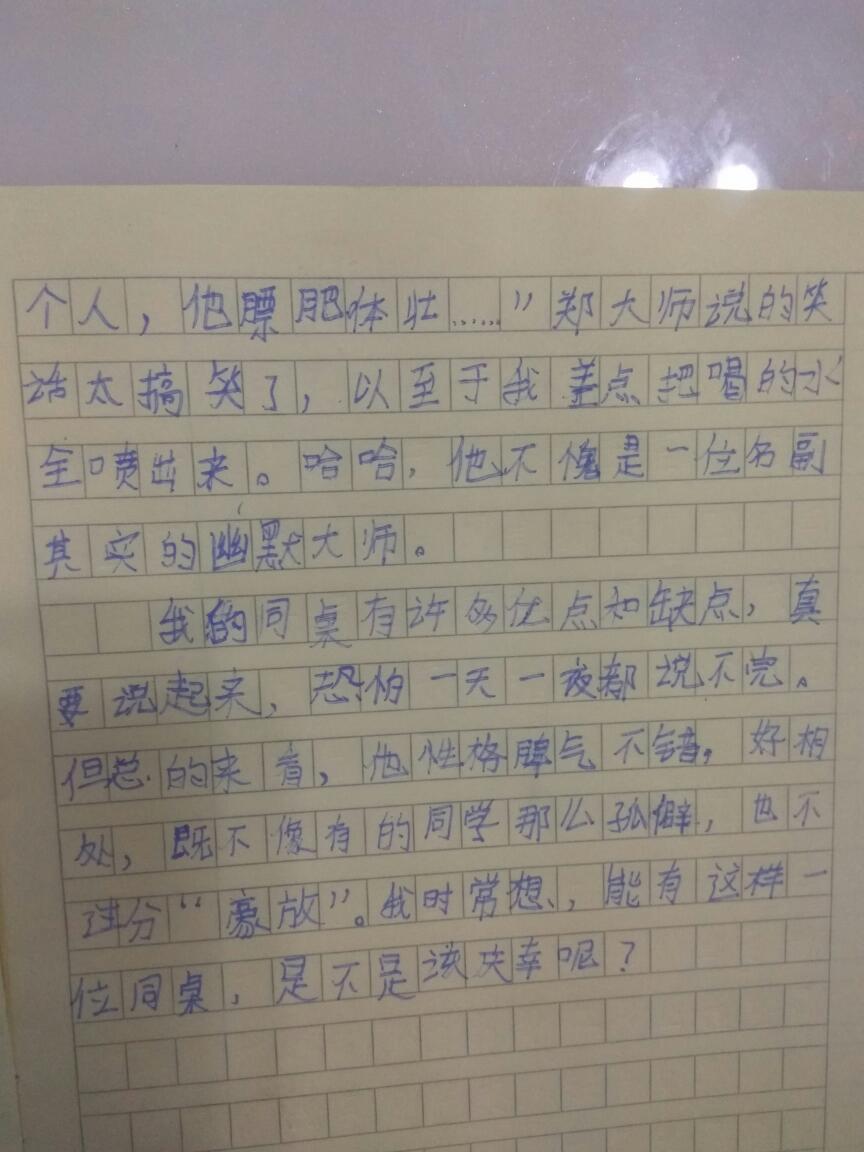 个人，他膘肥体壮……”郑大师说的笑
话太搞笑了，以至于我差点把喝的水
全喷出来。哈哈，他不愧是一位名副
其实的幽默大师。
我的同桌有许多优点和缺点，真
要说起来，恐怕一天一夜都说不完。
但总的来看，他性格脾气不错，好相
处，既不像有的同学那么孤僻，也不
过分“豪放”。我时常想，能有这样一
位同桌，是不是该庆幸呢？